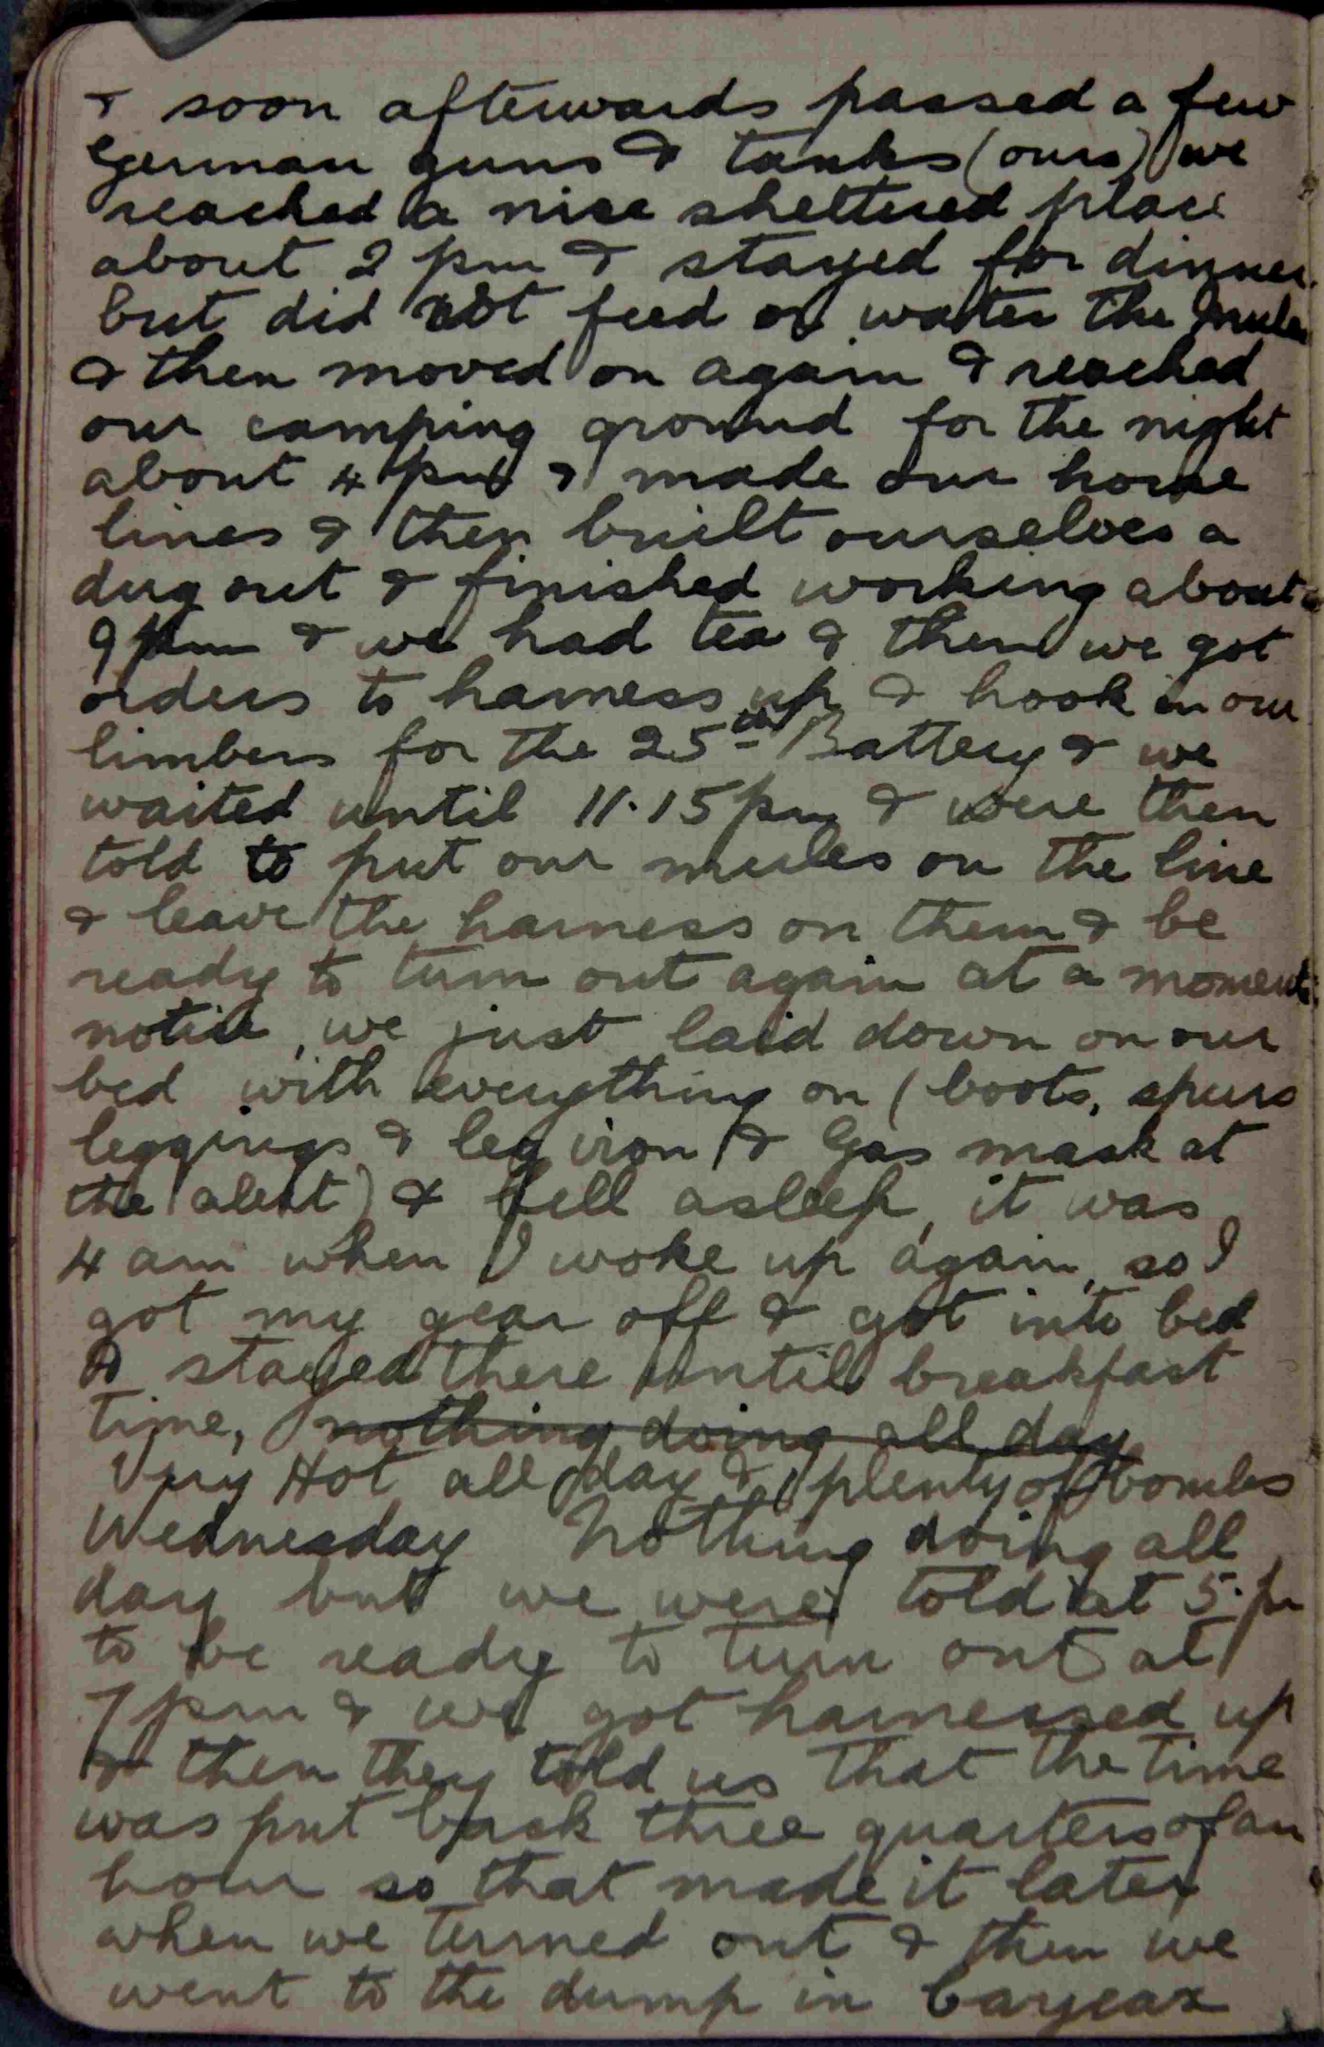 & soon afterwards passed a few
German guns & tanks (ours) we
reached a nice sheltered place
about 2 pm & stayed for dinner
but did not feed or water the mules
& then moved on again & reached
our camping ground for the night
about 4 pm & made our horse
lines & then built ourselves a
dug out & finished working about
9 pm & we had tea & then we got
orders to harness up & hook in our
limbers for the 25th Battery & we
waited until 11.15 pm & were then
told to put our mules on the line
& leave the harness on them & be
ready to turn out again at a moments
notice, we just laid down on our
bed with everything on (boots, spurs
leggings & leg iron & Gas mask at
the alert) & fell asleep, it was
4 am when I woke up again, so I
got my gear off & got into bed
& stayed there until breakfast
time, nothing doing all day
Very Hot all day & plenty of bombs
Wednesday Nothing doing all
day but we were told at 5.pm
to be ready to turn out at
7 pm & we got harnessed up
& then they told us that the time
was put back three quarters of an
hour so that made it later
when we turned out & then we
went to the dump in